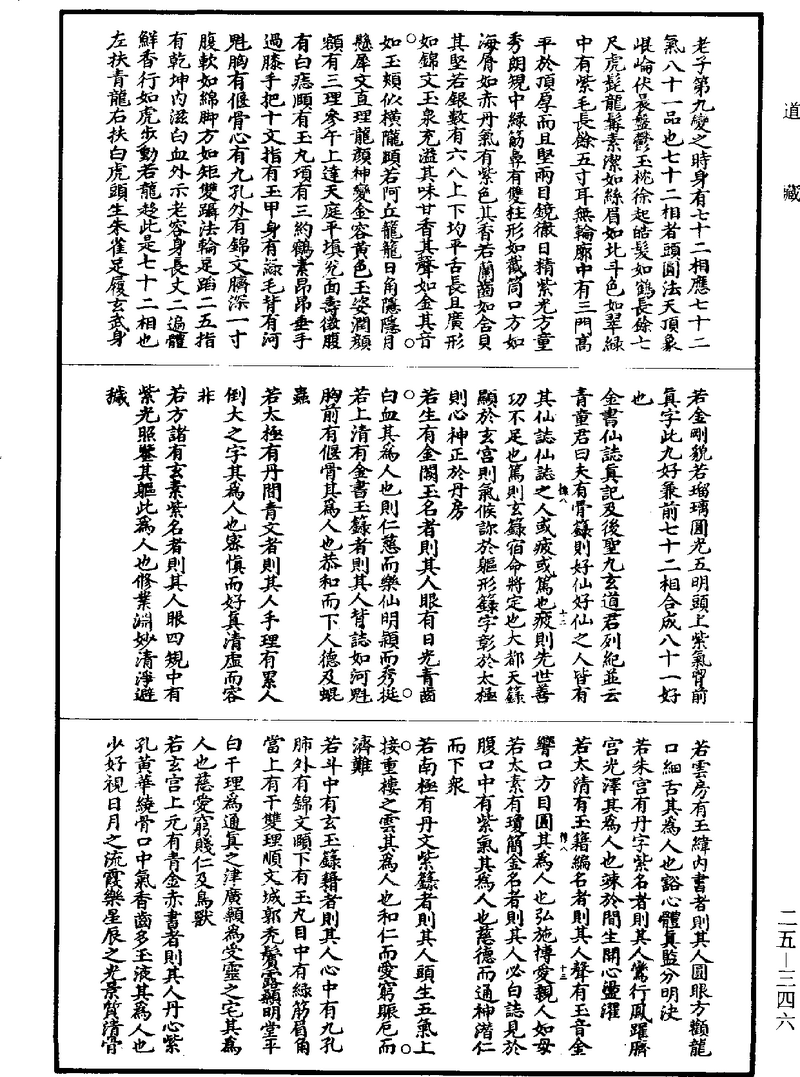 道藏
老子第九變之時身有七十二相應七十二
氣八十一品也七十二相者頭圓法天頂象
崐崘伏晨盤鬱玉枕徐起皓髮如鶴長餘七
尺虎髭龍髯素潔如絲眉如北斗色如翠綠
中有紫毛長餘五寸耳無輪廓中有三門高
平於頂厚而且堅兩目鏡徹日精紫光方童
秀朗規中綠筋鼻有雙柱形如截筒口方如
海脣如赤丹氣有紫色其香若蘭齒如含貝
其堅若銀數有六八上下均平舌長且廣形
如錦文玉泉充溢其味甘香其聲如金其音
如玉頰似橫隴頤若阿丘龍龍日角隱隱月
懸犀文直理龍顏神變金容黃色玉姿潤顏
額有三理參午上達天庭平填充面壽徵腹
有白痣頤有玉丸項有三約鶴素昂昂垂手
過膝手把十文指有玉甲身有淥毛背有河
魁胸有偃骨心有九孔外有錦文臍深一寸
腹軟如綿脚方如矩雙躡法輪足蹈二五指
有乾坤内滋白血外示老容身長丈二遍體
鮮香行如虎步動若龍趍此是七十二相也
左扶青龍右扶白虎頭生朱雀足履玄武身
若金剛貌若瑠璃圓光五明頭上紫氣胷前
眞字此九好兼前七十二相合成八十一好
也
金書仙誌眞記及後聖九玄道君列紀並云
青童君曰夫有骨籙則好仙好仙之人皆有
其仙誌仙誌之人或疲或篤也疲則先世善
功不足也篤則玄籙宿命將定也大都天籙
顯於玄宮則氣候診於軀形籙字彰於太極
則心神正於丹房
若生有金闕玉名者則其人眼有日光青齒
白血其爲人也則仁慈而樂仙明穎而秀挺
若上清有金書玉籙者則其人背誌如河魁
胸前有偃骨其爲人也恭和而下人德及蜫
蟲
若太極有丹簡青文者則其人手理有累人
倒大之字其爲人也密愼而好眞清虛而容
非
若方諸有玄素紫名者則其人眼四規中有
紫光照鑒其軀此爲人也修業淵妙清淨避
穢
若雲房有玉緯内書者則其人圓眼方顴龍
口細舌其爲人也豁心體眞監分明決
若朱宮有丹字紫名者則其人鸞行鳳躍臍
宮光澤其爲人也竦於閒生開心盪濯
若太清有玉籍編名者則其人聲有玉音金
響口方目圓其爲人也弘施博愛親人如母
若太素有瓊簡金名者則其人必白誌見於
腹口中有紫氣其爲人也慈德而通神潛仁
而下衆
若南極有丹文紫籙者則其人頭生五氣上
接重樓之雲其爲人也和仁而愛窮賑厄而
濟難
若斗中有玄玉籙籍者則其人心中有九孔
肺外有錦文頤下有玉丸目中有綠筋眉角
當上有干雙理順文城郭禿鬢露顙明堂平
白干理爲通眞之津廣顙為受靈之宅其爲
人也慈愛窮賤仁及鳥獸
若玄宮上元有青金赤書者則其人丹心紫
孔黃華繞骨口中氣香齒多玉液其爲人也
少好視日月之流霞樂星辰之光景質清骨
二五—三四六